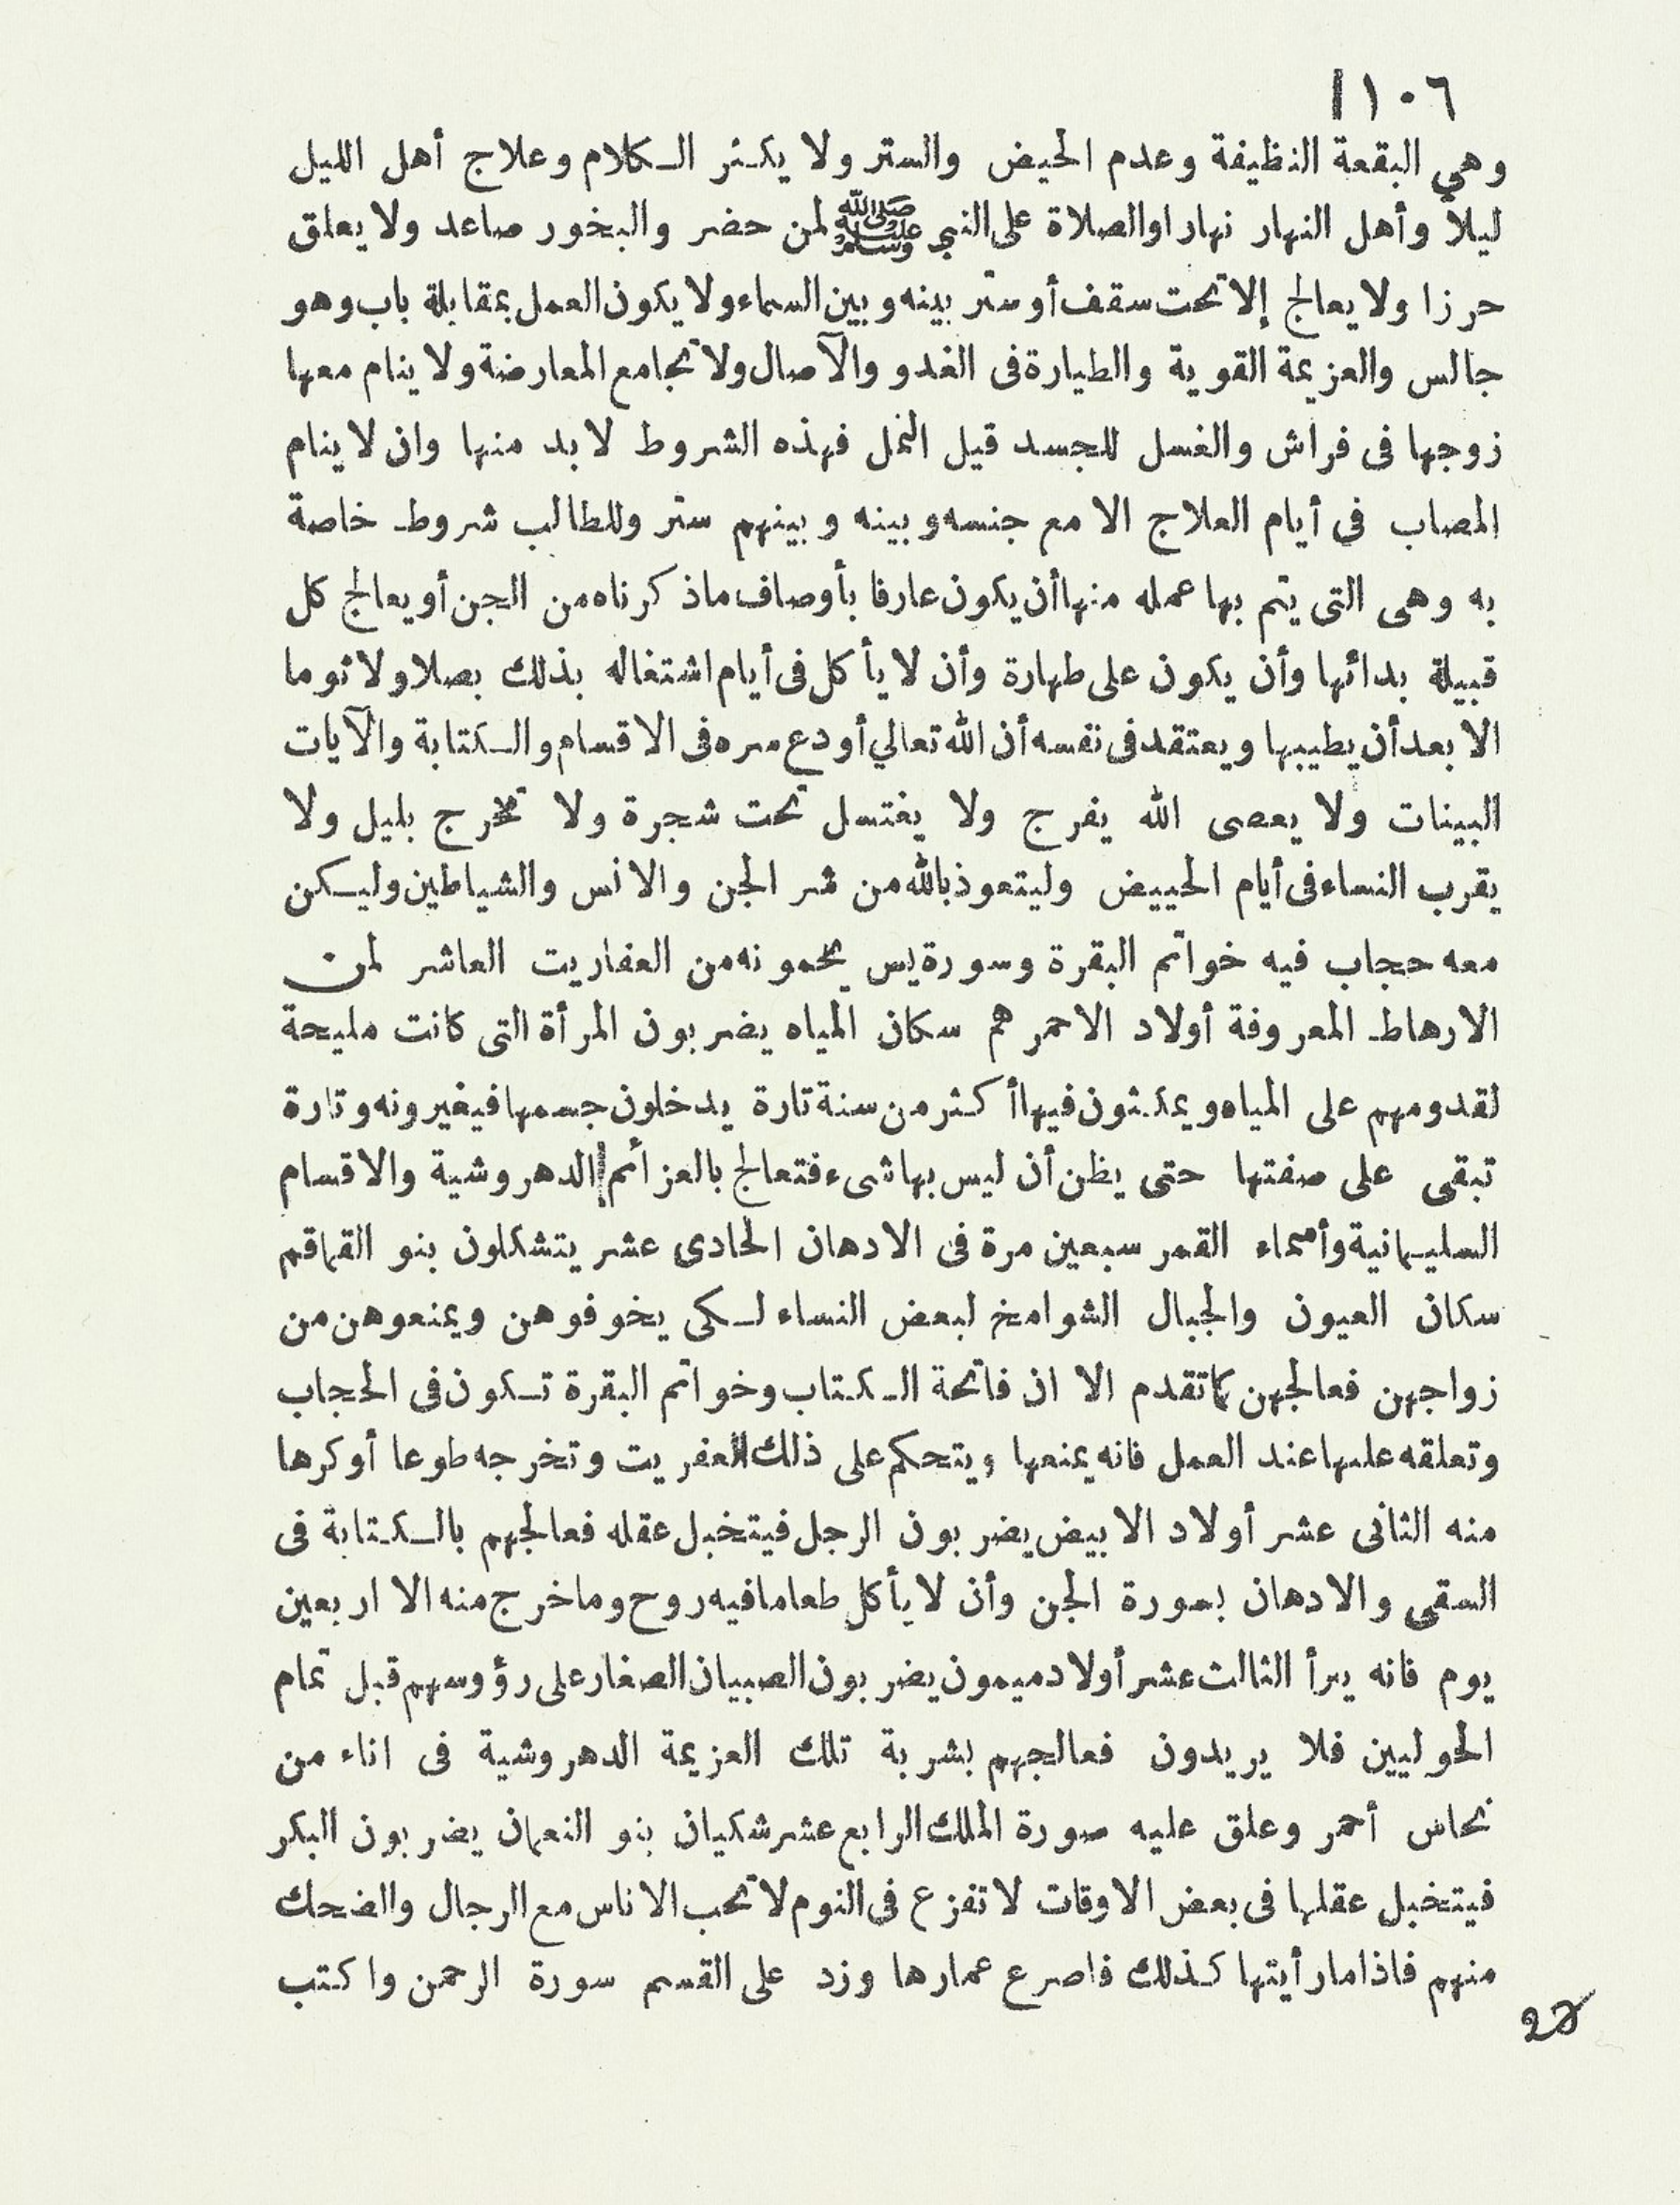 ١٠٦
وهي البقعة النظيفة وعدم الحيض والستر ولا يكثر الكلام وعلاج أهل الليل
ليلاً وأهل النهار نهارا والصلاة على النبي ﷺ لمن حضر والبخور صاعد ولا يعلق
حرزا ولا يعالج إلا تحت سقف أو ستر بينه وبين السماء ولا يكون العمل بمقابلة باب وهو
جالس والعزيمة القوية والطيارة فى الغدو والآصال ولا تجامع المعارضة ولا ينام معها
زوجها فى فراش والغسل للجسد قيل النمل فهذه الشروط لا بد منها وان لا ينام
المصاب فى أيام العلاج الا مع جنسه وبينه وبينهم ستر وللطالب شروط خاصة
به وهى التى يتم بها عمله منها أن يكون عارفا بأوصاف ماذكرناه من الجن أو يعالج كل
قبيلة بدائها وأن يكون على طهارة وأن لا يأكل فى أيام اشتغاله بذلك بصلا ولا ثوما
الا بعد أن يطيبها ويعتقد فى نفسه أن الله تعالي أودع سره فى الاقسام والكتابة والآيات
البينات ولا يعصى الله يفرج ولا يغتسل تحت شجرة ولا تخرج بليل ولا
يقرب النساء فى أيام الحييض وليتعوذ بالله من شر الجن والانس والشياطين وليكن
معه حجاب فيه خواتم البقرة وسورة يس يحمونه من العفاريت العاشر لمن
الارهاط المعروفة أولاد الاحمر هم سكان المياه يضربون المرأة التى كانت مليحة
لقدومهم على المياه ويمكثون فيها أكثر من سنة تارة يدخلون جسمها فيغيرونه وتارة
تبقى على صفتها حتى يظن أن ليس بها شىء فتعالج بالعزائم الدهروشية والاقسام
السليمانية وأسماء القمر سبعين مرة فى الادهان الحادى عشر يتشكلون بنو القماقم
سكان العيون والجبال الشوامخ لبعض النساء لكى يخوفوهن ويمنعوهن من
زواجهن فعالجهن كما تقدم الا ان فاتحة الكتاب وخواتم البقرة تكون فى الحجاب
وتعلقه عليها عند العمل فانه يمنعها ويتحكم على ذلك العفريت وتخرجه طوعا أوكرها
منه الثانى عشر أولاد الابيض يضربون الرجل فيتخبل عقله فعالجهم بالكتابة فى
السقى والادهان بسورة الجن وأن لا يأكل طعاما فيه روح وماخرج منه الا اربعين
يوم فانه يبرأ الثالث عشر أولاد ميمون يضربون الصبيان الصغار على رؤوسهم قبل تمام
الحوليين فلا يريدون فعالجهم بشربة تلك العزيمة الدهروشية فى اناء من
نحاس أحمر وعلق عليه صورة الملك الرابع عشر شكيان بنو النعمان يضربون البكر
فيتخبل عقلها فى بعض الاوقات لا تفزع فى النوم لا تحب الاناس مع الرجال والضحك
منهم فاذا مارأيتها كذلك فاصرع عمارها وزد على القسم سورة الرحمن واكتب